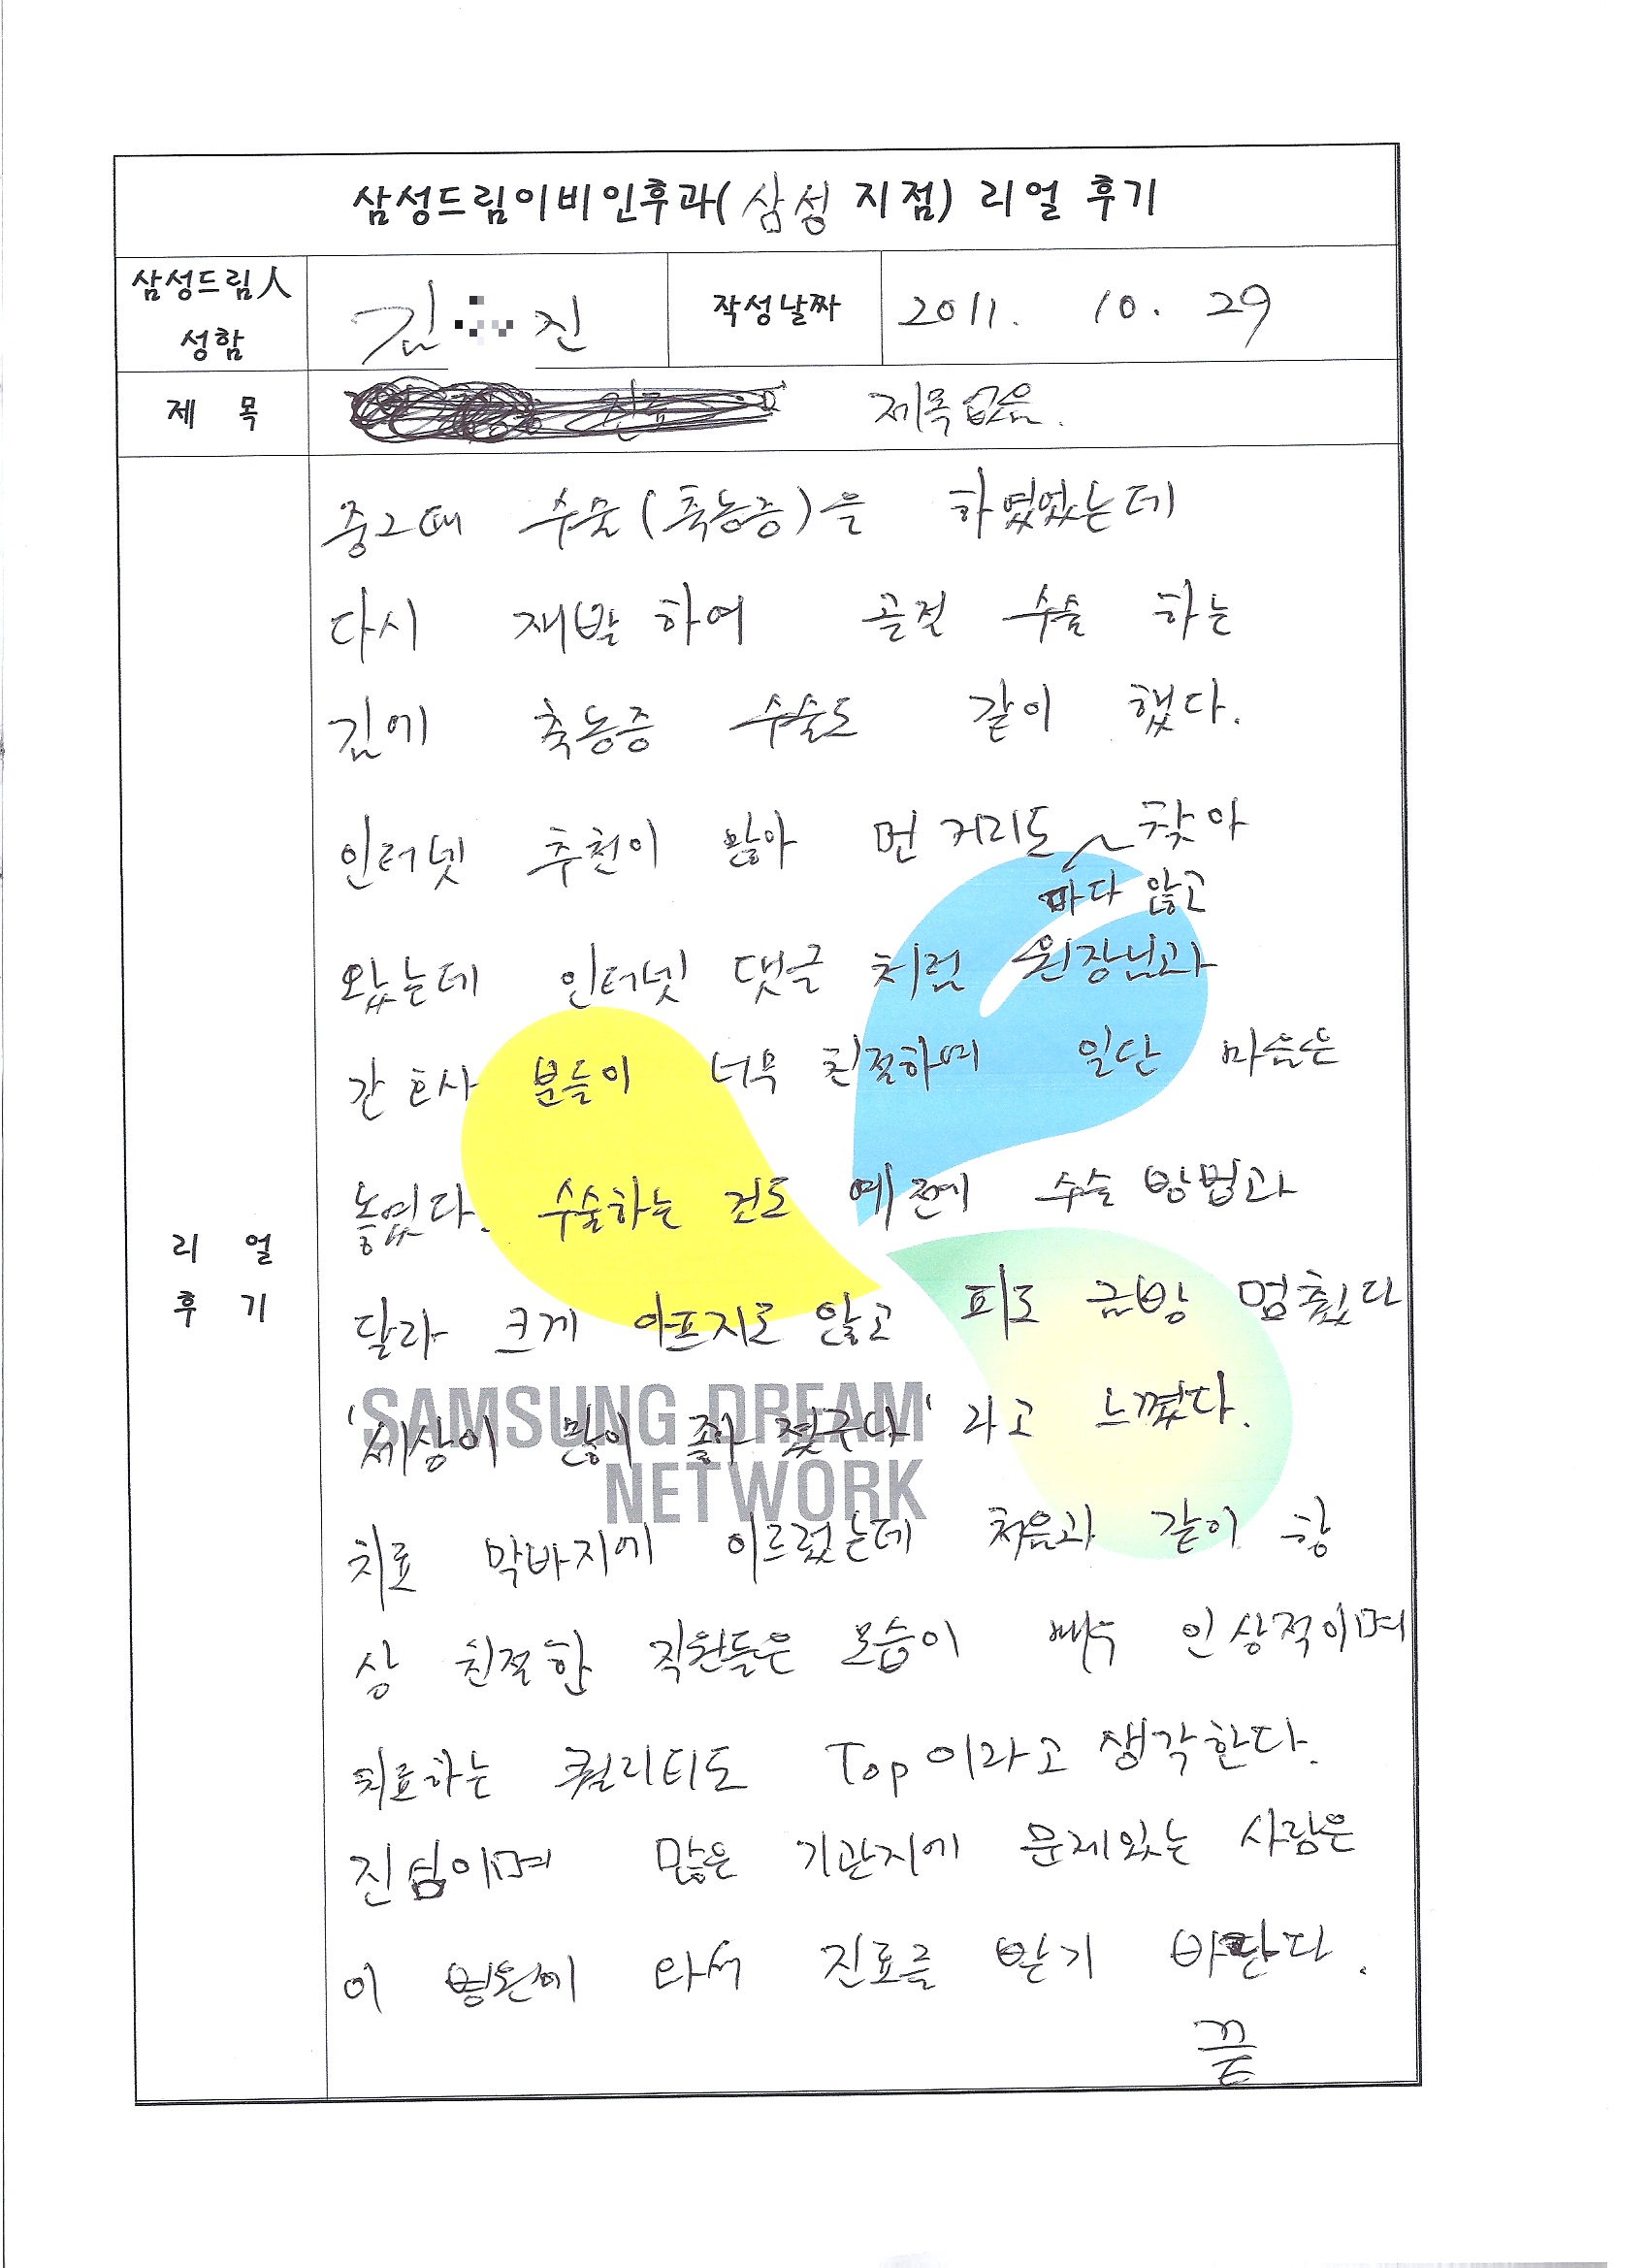 삼성드림이비인후과(삼성 지점) 리얼 후기
삼성드림人 성함 김 진 작성날짜 2011. 10. 29
제 목 제목없음.
중2때 수술(축농증)을 하였었는데
다시 재발하여 골절 수술 하는
김에 축농증 수술도 같이 했다.
인터넷 추천이 많아 먼 거리도 찾아
마다 않고
왔는데 인터넷 댓글 처럼 원장님과
간호사 분들이 너무 친절하며 일단 마음은
놓였다. 수술하는 것도 예전에 수술 방법과
달라 크게 아프지도 않고 피도 금방 멈췄다
리 얼
후 기
'세상이 많이 좋아 졌구나' 라고 느꼈다.
SAMSUNG DREAM
NETWORK
치료 막바지에 이르렀는데 처음과 같이 항
상 친절한 직원들은 모습이 매우 인상적이며
치료하는 퀄리티도 Top이라고 생각한다.
진심이며 많은 기관지에 문제있는 사람은
이 병원에 와서 진료를 받기 바란다.
끝